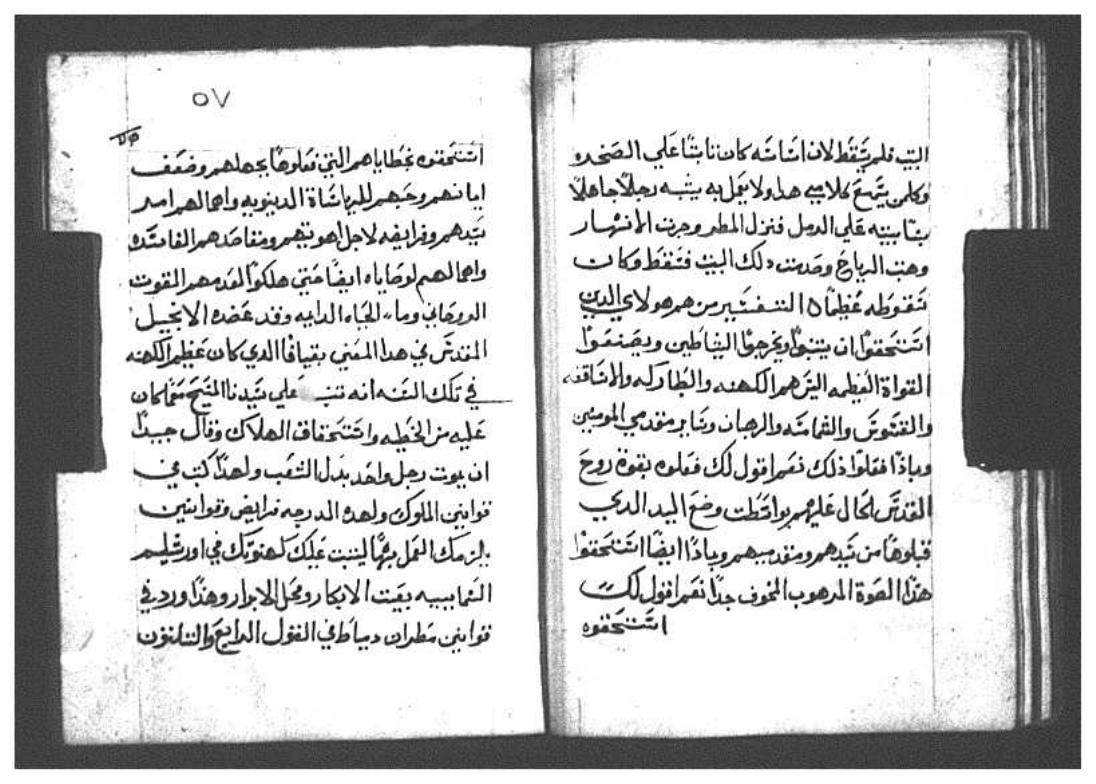 البيت فلم يسقط لان اساسه كان ثابتا علي الصخره
وكلمن يسمع كلامي هدا ولا يعمل به يشبه رجلا جاهلا
بنا بيته علي الرمل فنزل المطر وجرت الانهار
وهبت الرياح وصدمت دلك البيت فسقط وكان
سقوطه عظيما التفسير من هم هولاي الدين
استحقوا ان يتنبوا ويخرجوا الشياطين ويصنعوا
القواة العظيمه اليس هم الكهنه والبطاركه والاساقفه
والقسوس والشمامسه والرهبان وساير مقدمي المومنين
وبماذا فعلوا ذلك نعم اقول لك فعلوه بقوة روح
القدس الحال عليهم بواسطت وضع اليد الدي
قبلوها من سيدهم ومقدميهم وبماذا ايضا استحقوا
هذا الصوة المرهوب المخوف جدا نعم اقول لك
استحقوه
٥٧
استحقوه بخطاياهم التي فعلوها بجهلهم وضعف
ايمانهم وحبهم للرياساة الدنيويه واهمالهم امر
سيدهم وفرايضه لاجل اهويتهم ومقاصدهم الفاسده
واهمالهم لوصاياه ايضا حتي هلكوا لعدمهم القوت
الروحاني وماء الحياه الدايمه وقد عضده الانجيل
المقدس في هدا المعني بقيافا الدي كان عظيم الكهنه
في تلك السنه انه تنبـ علي سيدنا المسيح مع ما كان
عليه من الخطيه واستحقاق الهلاك وقال جيدا
ان يموت رجل واحد بدل الشعب ولهدا كتب في
قوانين الملوك ولهده الدرجه فرايض وقوانين
يلزمك العمل بها ليثبت عليك كهنوتك في اورشليم
السماييه بيعت الابكار ومحل الابرار وهذا ورد في
قوانين مطران دمياط في القول الرابع والتلتون